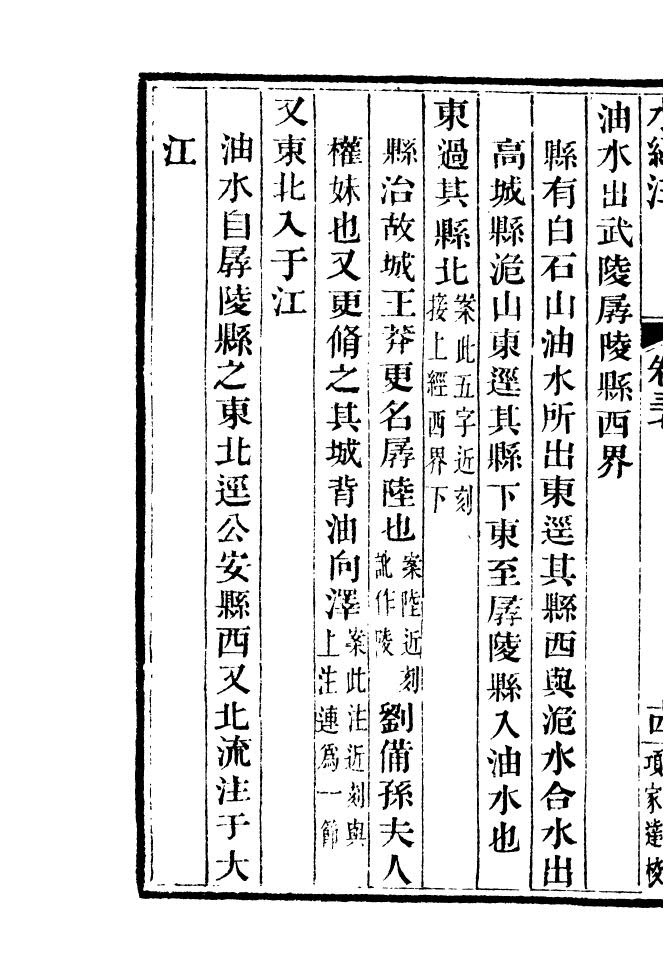 水經注 卷三七 十四 項家達校
油水出武陵孱陵縣西界
縣有白石山油水所出東逕其縣西與洈水合水出
高城縣洈山東逕其縣下東至孱陵縣入油水也
東過其縣北案此五字近刻接上經西界下
縣治故城王莽更名孱陸也案陸近刻訛作陵劉備孫夫人
權妹也又更脩之其城背油向澤案此注近刻與上注連爲一節
又東北入于江
油水自孱陵縣之東北逕公安縣西又北流注于大
江